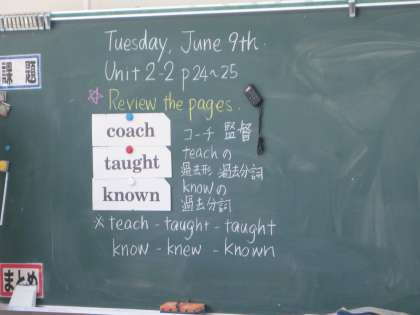 Tuesday, June 9th.
Unit 2-2 p24~25
☆ Review the pages.
課題
coach コーチ 監督
taught teachの
過去形 過去分詞
known knowの
過去分詞
※ teach - taught - taught
know - knew - known
まとめ